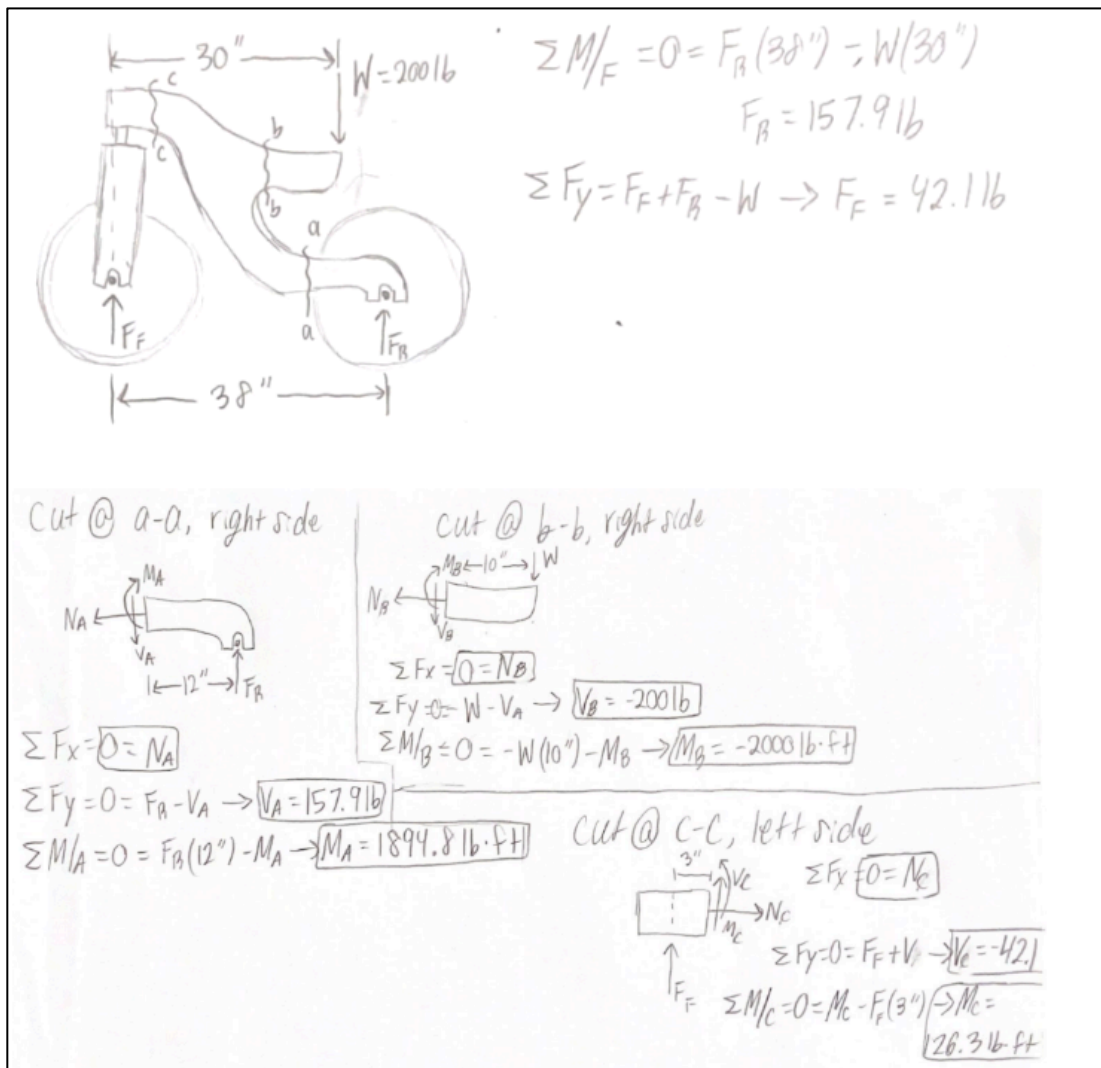 30"
W=200lb
c
c
b
b
a
a
F_F
F_R
38"
ΣM/F =0= F_R(38") - W(30")
F_R = 157.9lb
ΣFy = F_F+F_R - W → F_F = 42.1lb
cut @ a-a, right side
M_A
N_A
V_A
12"
F_R
ΣFx = 0 = N_A
ΣFy =0= F_R - V_A → V_A = 157.9lb
ΣM/A =0 = F_R(12") - M_A → M_A = 1894.8 lb·ft
cut @ b-b, right side
M_B 10" W
N_B
V_B
ΣFx = 0 = N_B
ΣFy =0= - W - V_A → V_B = -200lb
ΣM/B = 0 = -W(10") - M_B → M_B = -2000 lb·ft
cut @ c-c, left side
3"
V_C
N_C
M_C
F_F
ΣFx = 0 = N_C
ΣFy=0= F_F + V → V_C = -42.1
ΣM/C =0= M_C - F_F(3") → M_C =
126.3 lb·ft